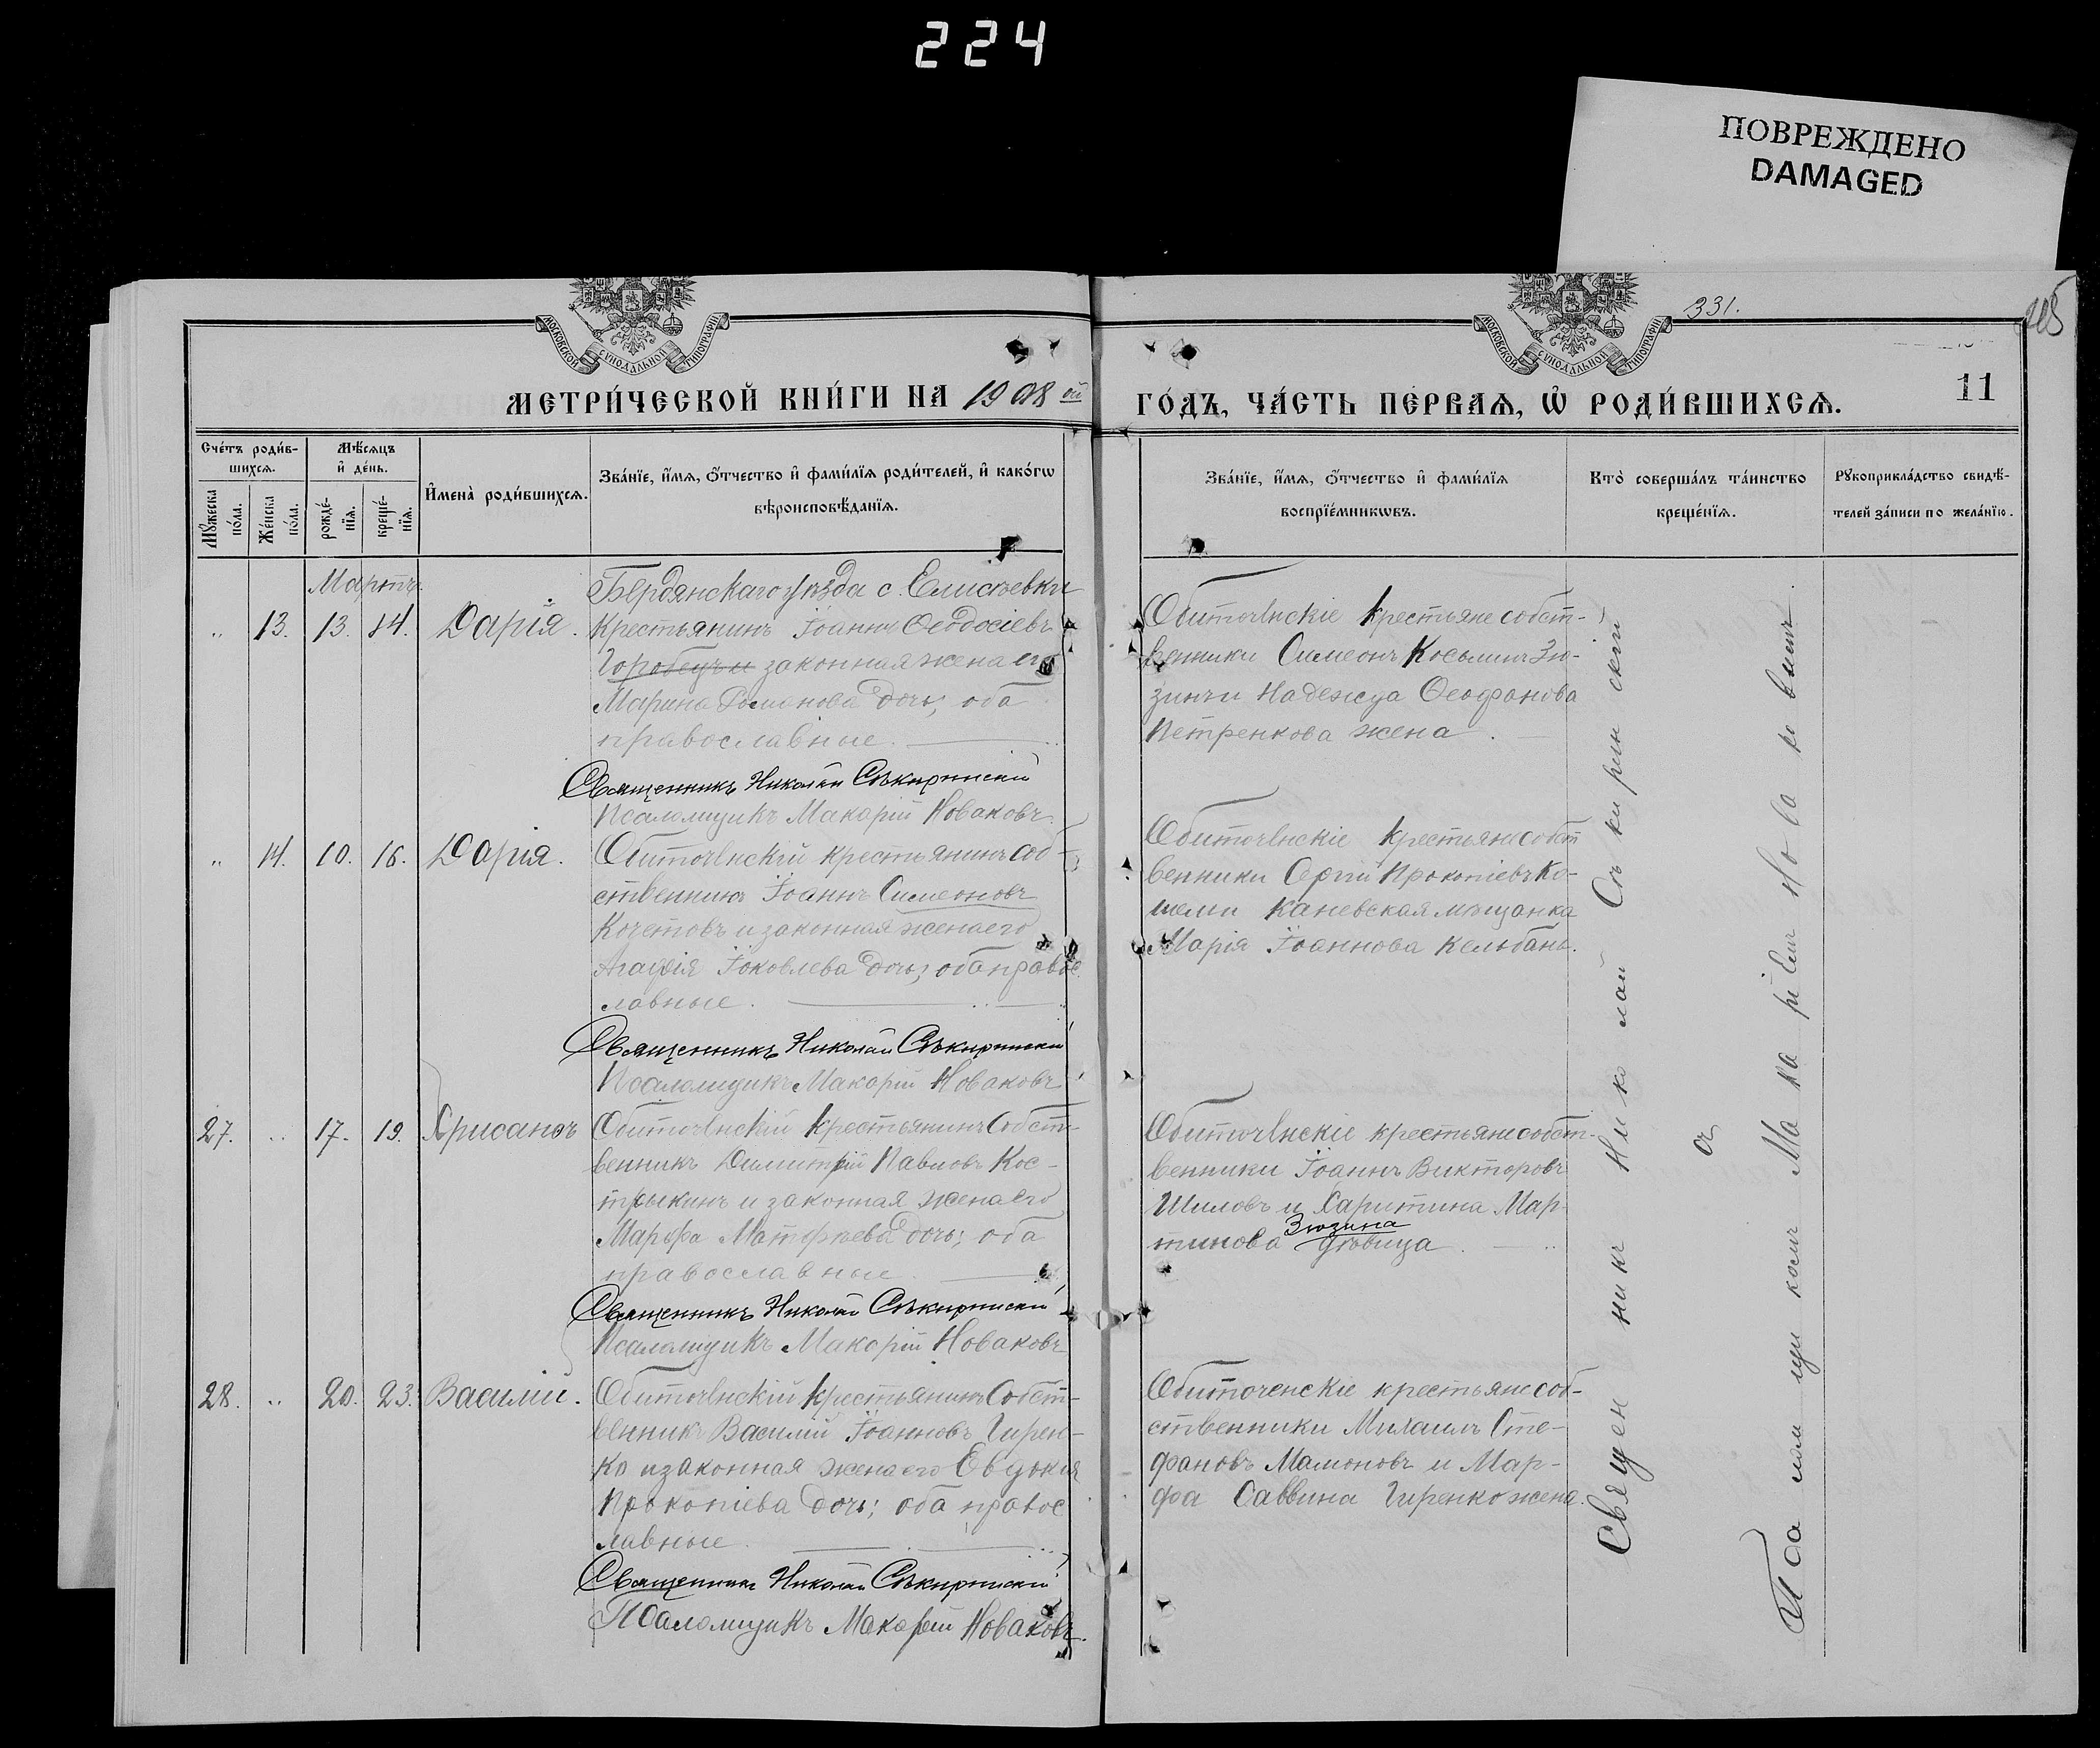 224
ПОВРЕЖДЕНО
DAMAGED
331.
МОСКОВСКОЙ СѴНОДАЛЬНОЙ ТИПОГРАФІИ
МОСКОВСКОЙ СѴНОДАЛЬНОЙ ТИПОГРАФІИ
МЕТРИ́ЧЕСКОЙ КНИ́ГИ НА 1908 ой
ГО́ДЪ, ЧА́СТЬ ПЕ́РВАѦ, Ѡ РОДИ́ВШИХСѦ.
11
Сче́тъ роди́в-
шихсѧ.
Мꙋ́жеска
по́ла.
Же́нска
по́ла.
Мѣ́сѧцъ
и҆ де́нь.
рожде́-
нїѧ.
креще́-
нїѧ.
И҆мена̀ роди́вшихсѧ.
Зва́нїе, и҆́мѧ, ѻ҆́тчество и҆ фами́лїѧ роди́телей, и҆ како́гѡ
вѣроисповѣ́данїѧ.
Зва́нїе, и҆́мѧ, ѻ҆́тчество и҆ фами́лїѧ
воспрїе́мникѡвъ.
Кто̀ соверша́лъ та́инство
креще́нїѧ.
Рꙋкоприкла́дство свидѣ́-
телей за́писи по жела́нїю.
Мартъ.
„ 13. 13. 14. Дарія.
Бердянскаго уѣзда с. Елисѣевки
крестьянинъ Іоаннъ Ѳеодосіевъ
Горобецъ и законная жена его
Марина Романова дочь; оба
православные.
Священникъ Николай Сѣкиринскій
Псаломщикъ Макарій Новаковъ.
Обиточенскіе крестьяне собст-
венники Симеонъ Косьминъ Зю-
зинъ и Надежда Ѳеофанова
Петренкова жена.
„ 14. 10. 16. Дарія.
Обиточенскій крестьянинъ соб-
ственникъ Іоаннъ Симеоновъ
Кочетовъ и законная жена его
Агафія Іаковлева дочь; оба правос
лавные.
Священникъ Николай Сѣкиринскій
Псаломщикъ Макарій Новаковъ
Обиточенскіе крестьяне собст
венники Сергій Прокопіевъ Ко-
каневская мѣщанка
Марія Іоаннова Кельбанъ.
27. „ 17. 19. Хрисанѳъ
Обиточенскій крестьянинъ собст-
венникъ Димитрій Павловъ Кос-
трыкинъ и законная жена его
Марфа Матфѣева дочь; оба
православные
Священникъ Николай Сѣкиринскій
Псаломщикъ Макарій Новаковъ
Обиточенскіе крестьяне собст-
венники Іоаннъ Викторовъ
Шиловъ и Харитина Мар-
Зюзина
тинова дѣвица.
28. „ 20. 23. Василій.
Обиточенскій крестьянинъ собст-
венникъ Василій Іоанновъ Гирен-
ко и законная жена его Евдокія
Прокопіева дочь; оба правос
лавные.
Священникъ Николай Сѣкиринскій
Псаломщикъ Макарій Новаковъ.
Обиточенскіе крестьяне соб-
ственники Михаилъ Сте-
фановъ Мамоновъ и Мар-
фа Саввина Гиренко жена.
Священникъ Николай Сѣкиринскій
съ
Псаломщикомъ Макаріемъ Новаковымъ.